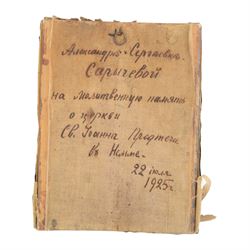 Александре Сергеевне
Сарычевой
на молитвенную память
о церкви
Св. Iоанна Предтечи
въ
22 июля
1925 г